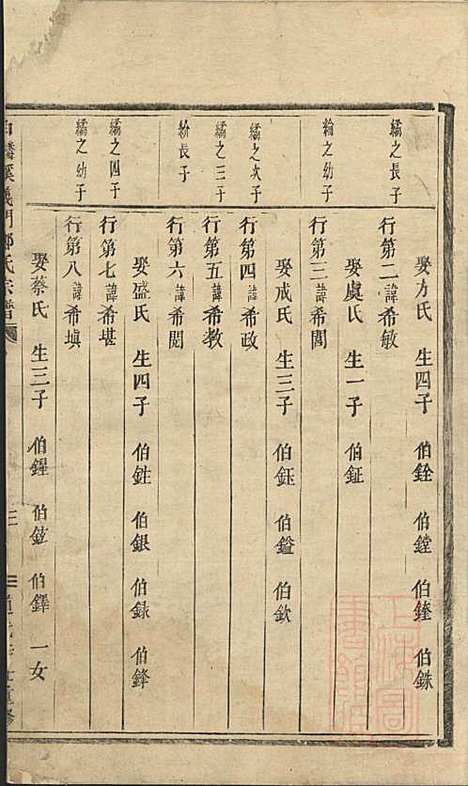 繑之長子
行第二諱希敏
娶方氏 生四子 伯銓 伯鏜 伯鏠 伯銖
綸之幼子
行第三諱希閶
娶虞氏 生一子 伯鉦
繑之次子
行第四諱希政
娶戚氏 生三子 伯鈺 伯鎰 伯欽
繑之三子
行第五諱希教
紛長子
行第六諱希閎
繑之四子
行第七諱希堪
娶盛氏 生四子 伯鉎 伯銀 伯録 伯鋒
繑之幼子
行第八諱希塤
娶蔡氏 生三子 伯鍟 伯鉉 伯鐸 一女
白麟溪義門鄭氏宗譜
三